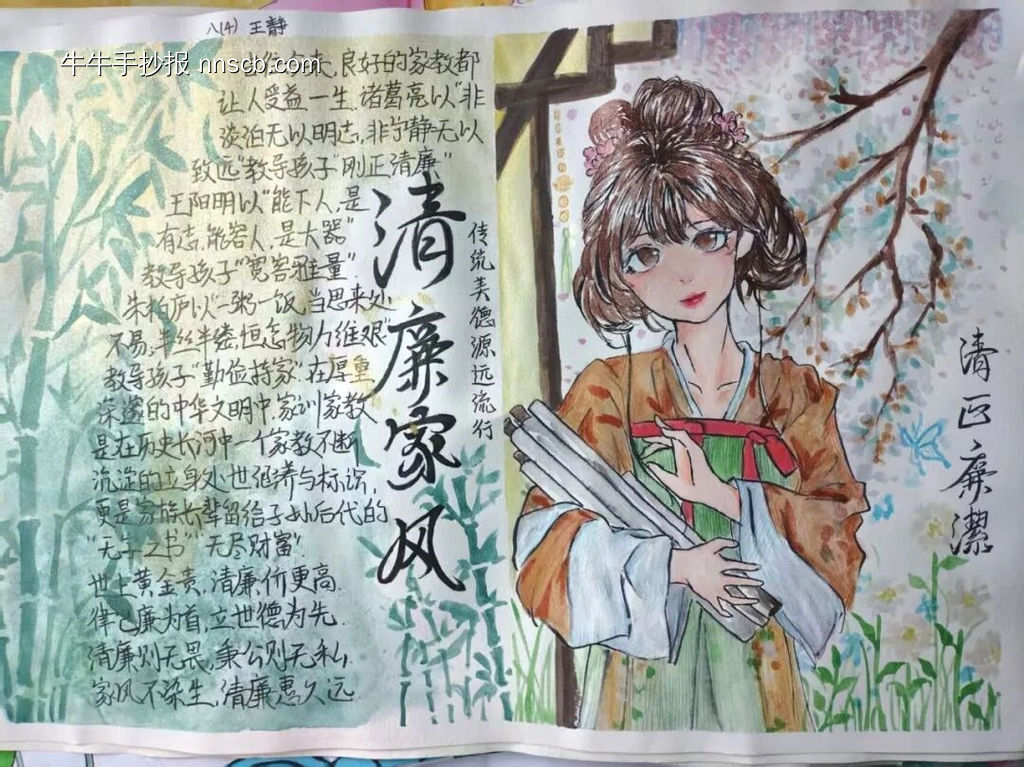 八(4) 王静
牛牛手抄报 nnscb.com
良好的家教都
让人受益一生,诸葛亮以"非
淡泊无以明志,非宁静无以
致远"教导孩子"刚正清廉"
王阳明以"能下人,是
有志,能容人,是大器"
教导孩子"宽容雅量".
朱柏庐以"一粥一饭,当思来处
不易,半丝半缕,恒念物力维艰"
教导孩子"勤俭持家".在厚重
深邃的中华文明中,家训家教
是在历史长河中一个家教不断
沉淀的立身处世 与标识,
更是家族长辈留给子孙后代的
"无字之书""无尽财富".
世上黄金贵,清廉价更高.
律己廉为首,立世德为先.
清廉则无畏,秉公则无私.
家风不染尘,清廉惠久远.
清廉家风
传统美德源远流行
清正廉潔